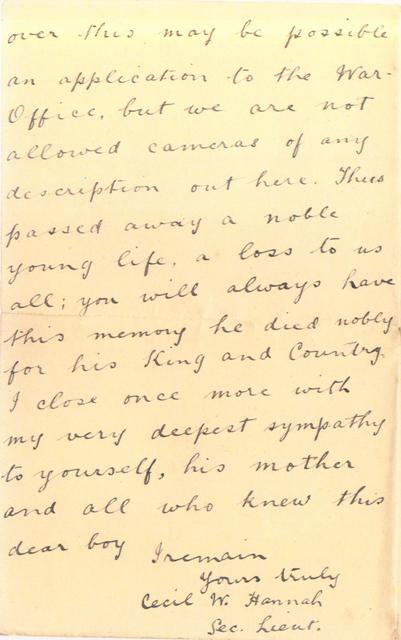 over this may be possible
an application to the War-
Office, but we are not
allowed cameras of any
description out here. Thus
passed away a noble
young life, a loss to us
all; you will always have
this memory he died nobly
for his King and Country.
I close once more with
my very deepest sympathy
to yourself, his mother
and all who knew this
dear boy
I remain
Yours truly
Cecil W. Hannah
Sec. Lieut.